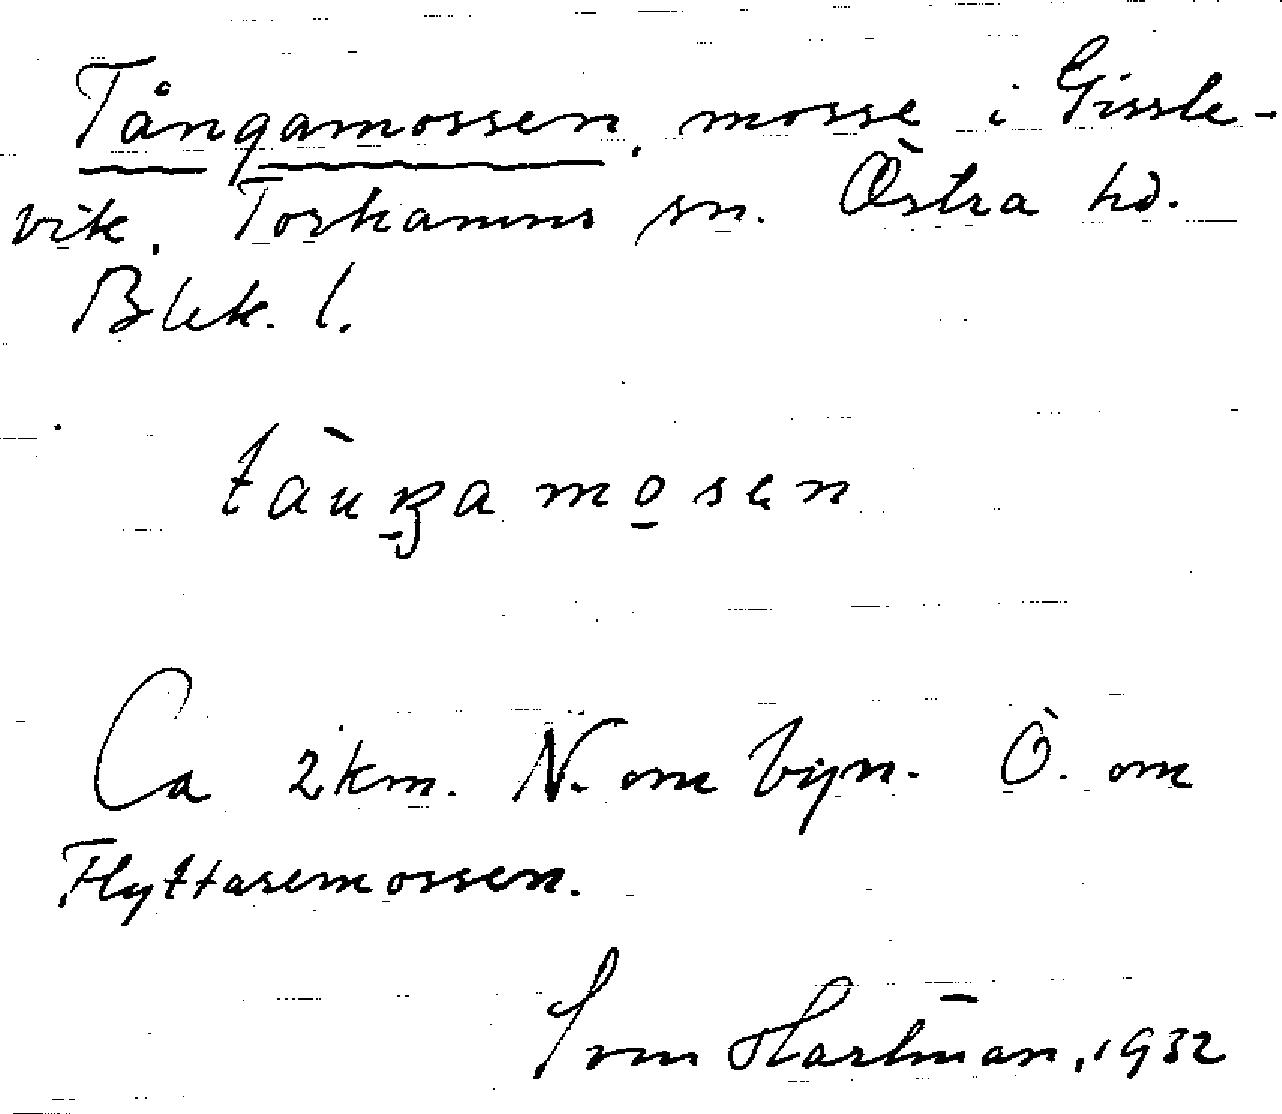 Tångamossen, mosse i Gissle-
vik. Torhamns sn. Östra hd.
Blek. l.
Ca 2 km. N. om byn. Ö. om
Flyttaremossen.
Sven Hartman, 1932